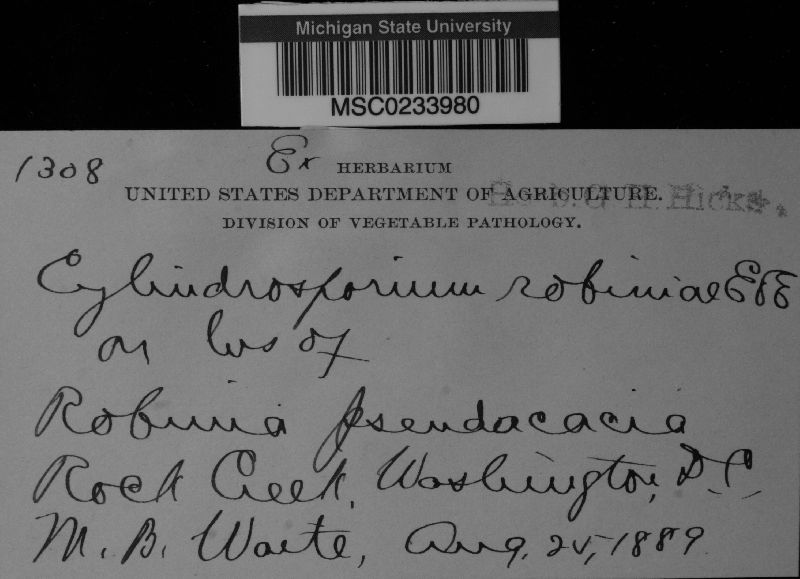 Michigan State University
MSC0233980
1308 Ex HERBARIUM
UNITED STATES DEPARTMENT OF AGRICULTURE.
Herb. G H. Hicks.
DIVISION OF VEGETABLE PATHOLOGY.
Cylindrosporium robiniae E&E
on lvs of
Robinia pseudacacia
Rock Creek, Washington, D.C.
M. B. Waite, Aug. 25, 1889